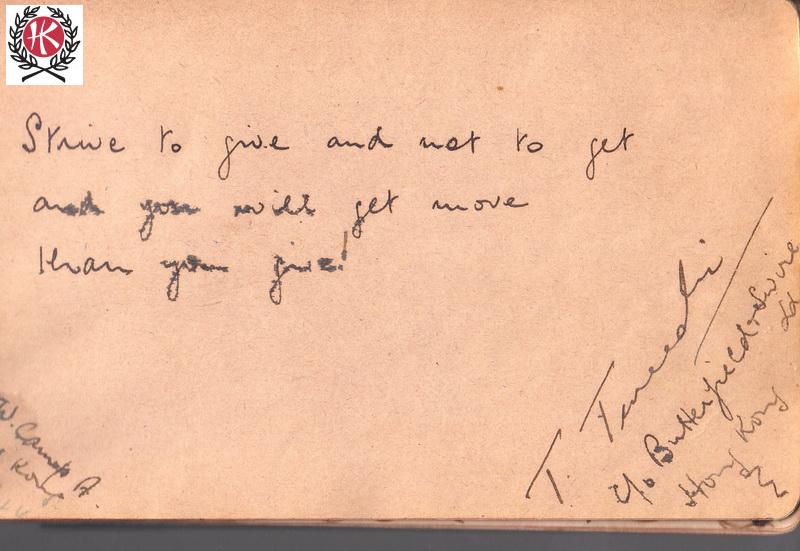 HK
Strive to give and not to get
and you will get more
than you give!
T.
c/o Butterfield & Swire
Ld
Hong Kong
W. Camp A
Kong
44